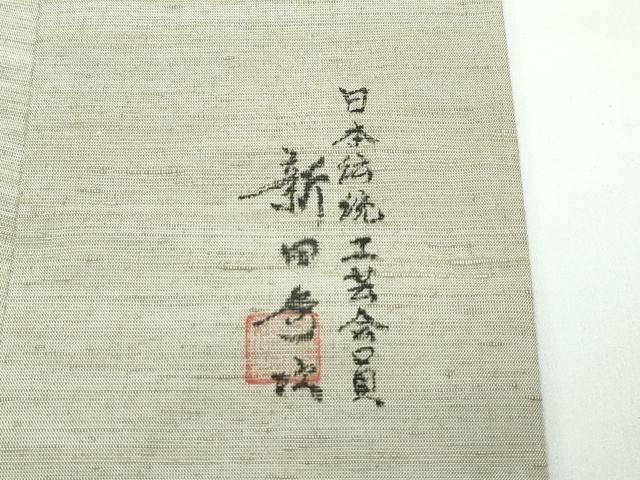 日本伝統工芸会員
新田